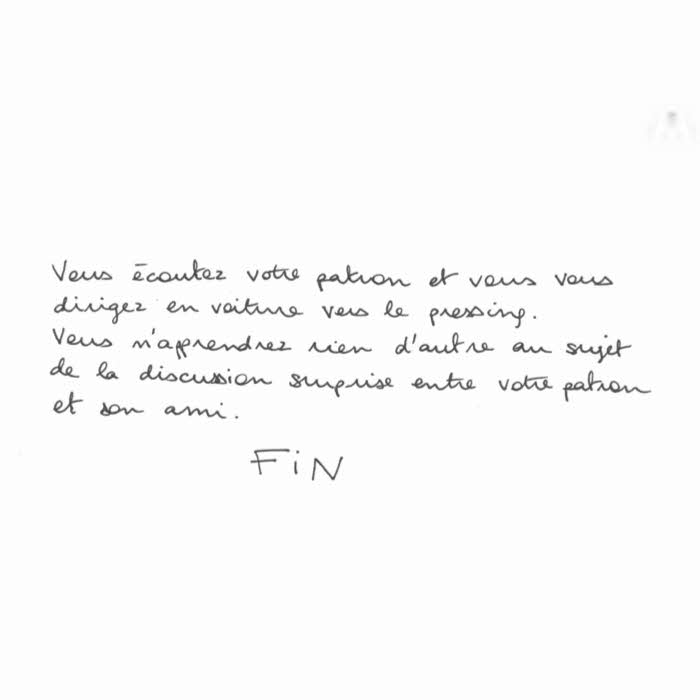 Vous écoutez votre patron et vous vous
dirigez en voiture vers le pressing.
Vous n'apprendrez rien d'autre au sujet
de la discussion surprise entre votre patron
et son ami.
FiN